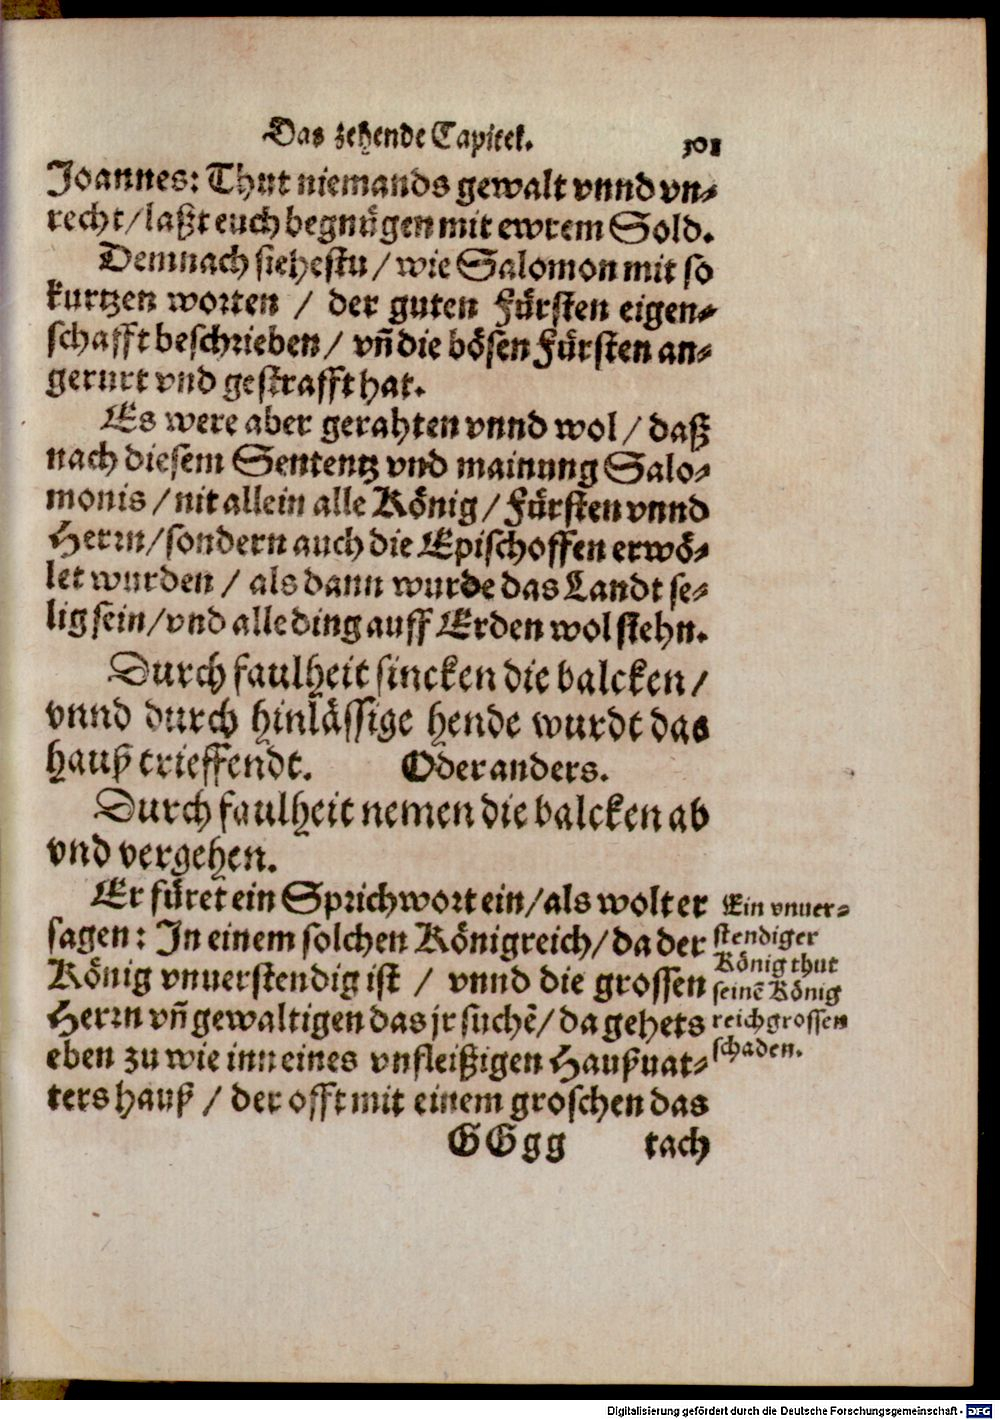 Das zehende Capitel. 301
Joannes: Thut niemands gewalt vnnd vn⸗
recht/laßt euch begnügen mit ewrem Sold.
Demnach siehestu/ wie Salomon mit so
kurtzen worten / der guten Fürsten eigen⸗
schafft beschrieben/ vñ die bösen Fürsten an⸗
gerurt vnd gestrafft hat.
Es were aber gerahten vnnd wol/ daß
nach diesem Sententz vnd mainung Salo⸗
monis/nit allein alle König/ Fürsten vnnd
Herrn/sondern auch die Epischoffen erwö⸗
let wurden / als dann wurde das Landt se⸗
lig sein/vnd alle ding auff Erden wol stehn.
Durch faulheit sincken die balcken/
vnnd durch hinlässige hende wurdt das
hauß trieffendt. Oder anders.
Durch faulheit nemen die balcken ab
vnd vergehen.
Er füret ein Sprichwort ein/als wolt er
sagen: In einem solchen Königreich/da der
König vnuerstendig ist / vnnd die grossen
Herrn vñ gewaltigen das jr suchē/ da gehets
eben zu wie inn eines vnfleißigen Haußuat⸗
ters hauß / der offt mit einem groschen das
Ein vnuer⸗
stendiger
König thut
seinē König
reich grossen
schaden.
GGgg tach
Digitalisierung gefördert durch die Deutsche Forschungsgemeinschaft - DFG